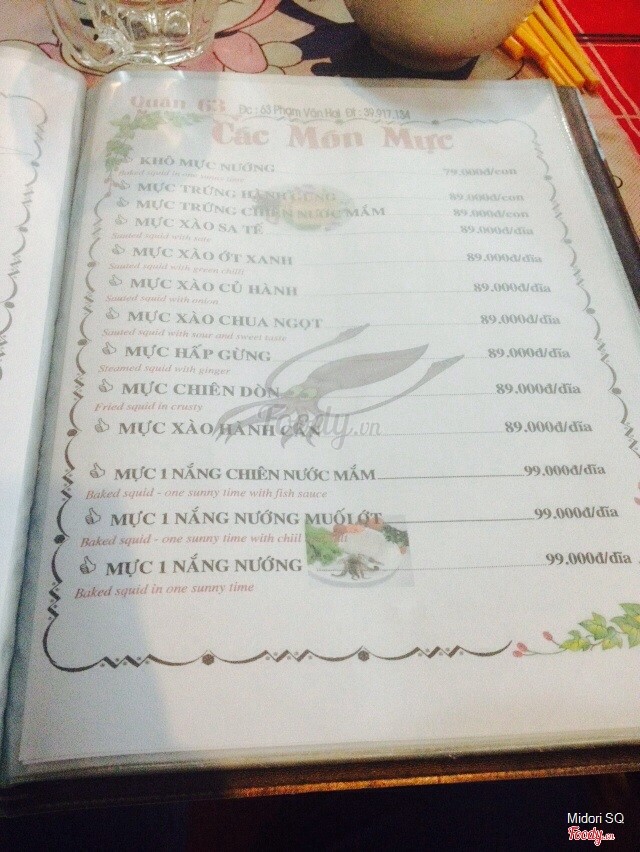 Quán 63 Đc : 63 Phạm Văn Hai Đt : 39.917.134
Các Món Mực
KHÔ MỰC NƯỚNG 79.000đ/con
Baked squid in one sunny time
MỰC TRỨNG HÀNH GỪNG 89.000đ/con
MỰC TRỨNG CHIÊN NƯỚC MẮM 89.000đ/con
MỰC XÀO SA TẾ 89.000đ/dĩa
Sauted squid with
MỰC XÀO ỚT XANH 89.000đ/dĩa
Sauted squid with green chilli
MỰC XÀO CỦ HÀNH 89.000đ/dĩa
Sauted squid with onion
MỰC XÀO CHUA NGỌT 89.000đ/dĩa
Sauted squid with sour and sweet taste
MỰC HẤP GỪNG 89.000đ/dĩa
Steamed squid with ginger
MỰC CHIÊN DÒN 89.000đ/dĩa
Fried squid in crusty
MỰC XÀO HÀNH CẦN 89.000đ/dĩa
Foody.vn
MỰC 1 NẮNG CHIÊN NƯỚC MẮM 99.000đ/dĩa
Baked squid - one sunny time with fish sauce
MỰC 1 NẮNG NƯỚNG MUỐI ỚT 99.000đ/dĩa
Baked squid - one sunny time with
MỰC 1 NẮNG NƯỚNG 99.000đ/dĩa
Baked squid in one sunny time
Midori SQ
Foody.vn